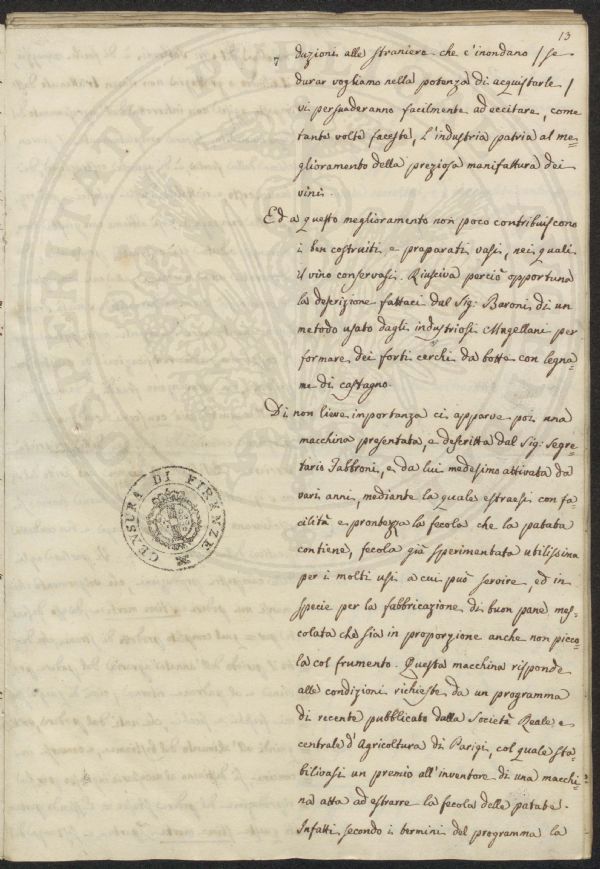 13
7
duzioni alle straniere che c'inondano / se
durar vogliamo nella potenza di acquistarle /
vi persuaderanno facilmente ad eccitare, come
tante volte faceste, l'industria patria al me=
glioramento della preziosa manifattura dei
vini.
Ed a questo meglioramento non poco contribuiscono
i ben costruiti e preparati vasi, nei quali
il vino conservasi. Riusciva perciò opportuna
la descrizione fattaci dal Sig: Baroni di un
metodo usato dagli industriosi Mugellani per
formare dei forti cerchi da botte con legna=
me di castagno.
Di non lieve importanza ci apparve poi una
macchina presentata, e descritta dal Sig: Segre=
tario Fabbroni, e da lui medesimo attivata da
vari anni, mediante la quale estraesi con fa=
cilità e prontezza la fecola che la patata
contiene, fecola già sperimentata utilissima
per i molti usi a cui può servire, ed in
specie per la fabbricazione di buon pane mes=
colata che sia in proporzione anche non picco=
la col frumento. Questa macchina risponde
alle condizioni richieste da un programma
di recente pubblicato dalla Società Reale e
centrale d'Agricoltura di Parigi, col quale sta=
bilivasi un premio all'inventore di una macchi=
na atta ad estrarre la fecola delle patate.
Infatti secondo i termini del programma la
CENSURA DI FIRENZE